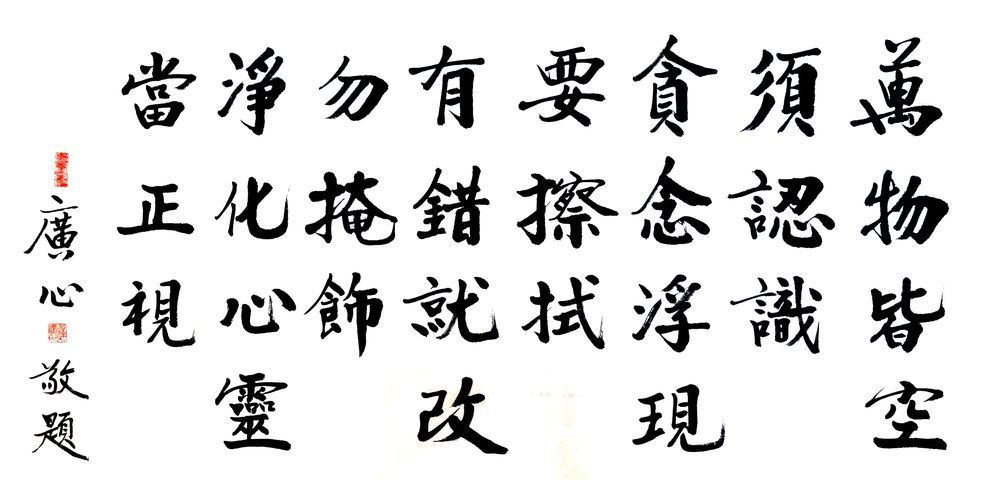 萬物皆空
須認識
貪念浮現
要擦拭
有錯就改
勿掩飾
淨化心靈
當正視
廣心敬題